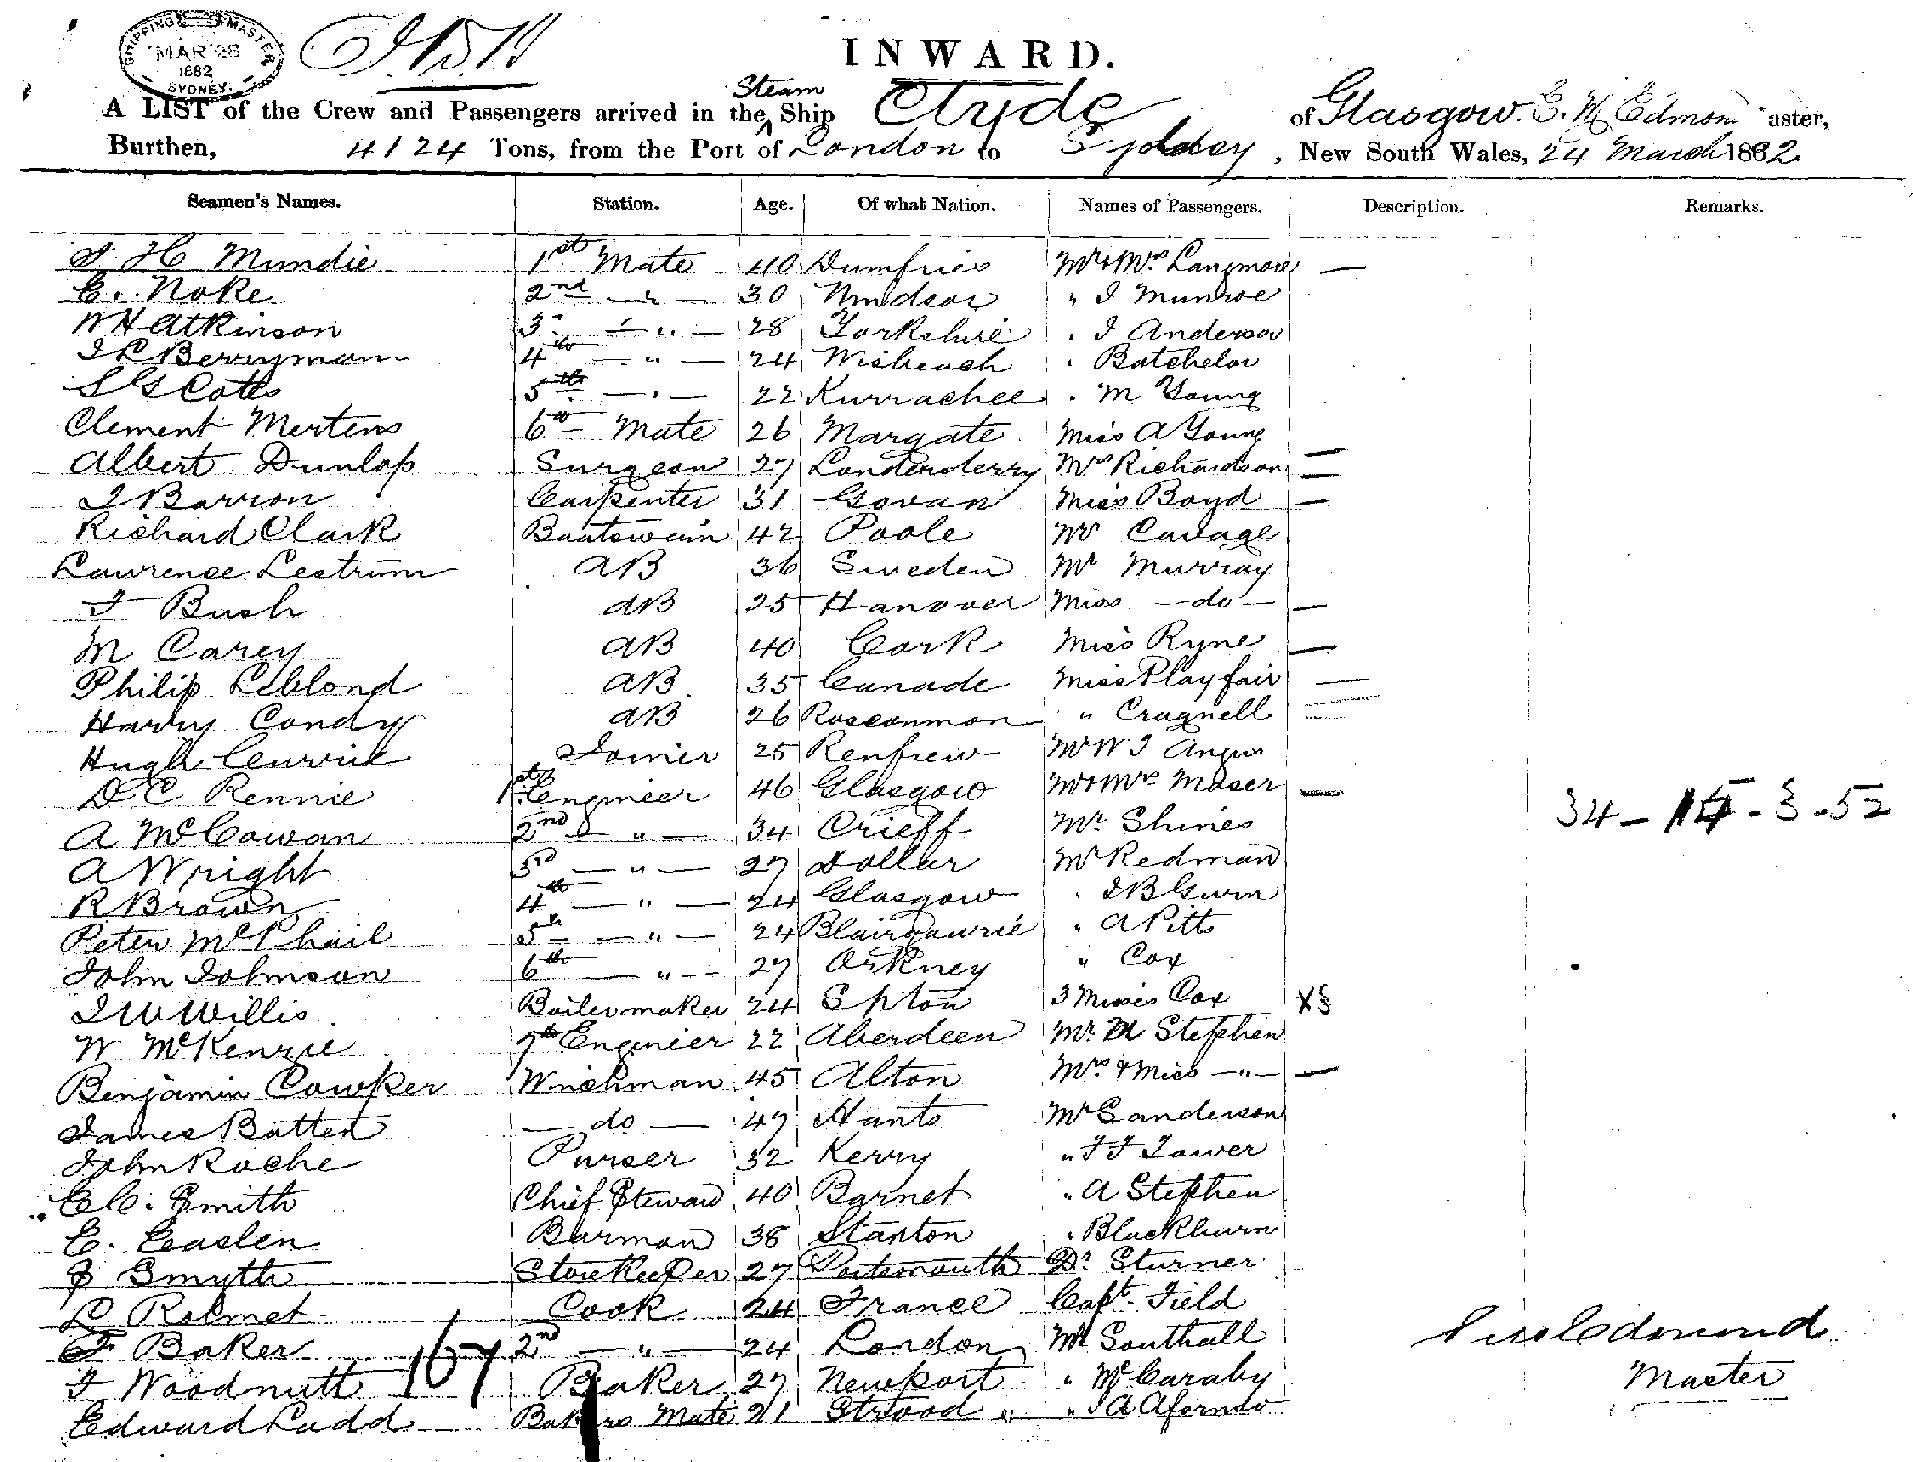 SHIPPING MASTER
MAR 28
1882
SYDNEY.
INWARD.
Steam
A LIST of the Crew and Passengers arrived in the Ship Clyde of Glasgow. Master,
Burthen, 4124 Tons, from the Port of London to Sydney, New South Wales, 24 March 1882
Seamen's Names. Station. Age. Of what Nation. Names of Passengers. Description. Remarks.
J H Mundie 1st Mate 40 Dumfries Mr & Mrs Langmore —
C. Noke 2nd — " — 30 Windsor " J Munroe
W H Atkinson 3 — " — 28 Yorkshire " J Anderson
J R Berryman 4th — " — 24 Wisbeach " Batchelor
S G Cotts 5th — " — 22 Kurrachee " M Young
Clement Mertens 6th Mate 26 Margate Miss A Young —
Albert Dunlop Surgeon 27 Londonderry Mrs Richardson —
J Barron Carpenter 31 Govan Miss Boyd —
Richard Clark Boatswain 42 Poole Mr
Lawrence Lestrum AB 36 Sweden Mr Murray
J Bush AB 25 Hanover Miss — do — —
M Carey AB 40 Cork Miss Ryne —
Philip Leblond AB 35 Canade Miss Playfair —
Harry Condy AB 26 Roscommon " Cragnell —
Hugh Currie Joiner 25 Renfrew Mr W J Angus
D C Rennie 1st Engineer 46 Glasgow Mr & Mrs Moser —
34 - 15 - 3 - 52
A McCowan 2nd — " — 34 Crieff Mr Shines
A Wright 3rd — " — 27 Dollar Mr Redman
R Brown 4th — " — 24 Glasgow " J B Gurn
Peter McPhail 5th — " — 24 Blairgowrie " A Pitt
John Johnson 6th — " — 27 Orkney " Cox
J W Willis Boilermaker 24 3 Misses Cox X
W McKenzie 7th Engineer 22 Aberdeen Mr M Stephen
Benjamin Cowker Winchman 45 Alton Mrs & Miss — " — —
James Batten — do — 47 Hants Mr Sanderson
John Roche Purser 32 Kerry " J J Tower
C C. Smith Chief Steward 40 Barnet " A Stephen
E. Easlen Barman 38 Stanton " Blackburn
J Smyth Storekeeper 27 Portsmouth Dr Sturner
L Rolmet Cook 24 France Capt. Field
F Baker 2nd — " — 24 London Mr Southall
J Woodnutt 167 Baker 27 Newport " McCaraby
Master
Edward Ladd Bakers Mate 21 Strood " J A Afonso